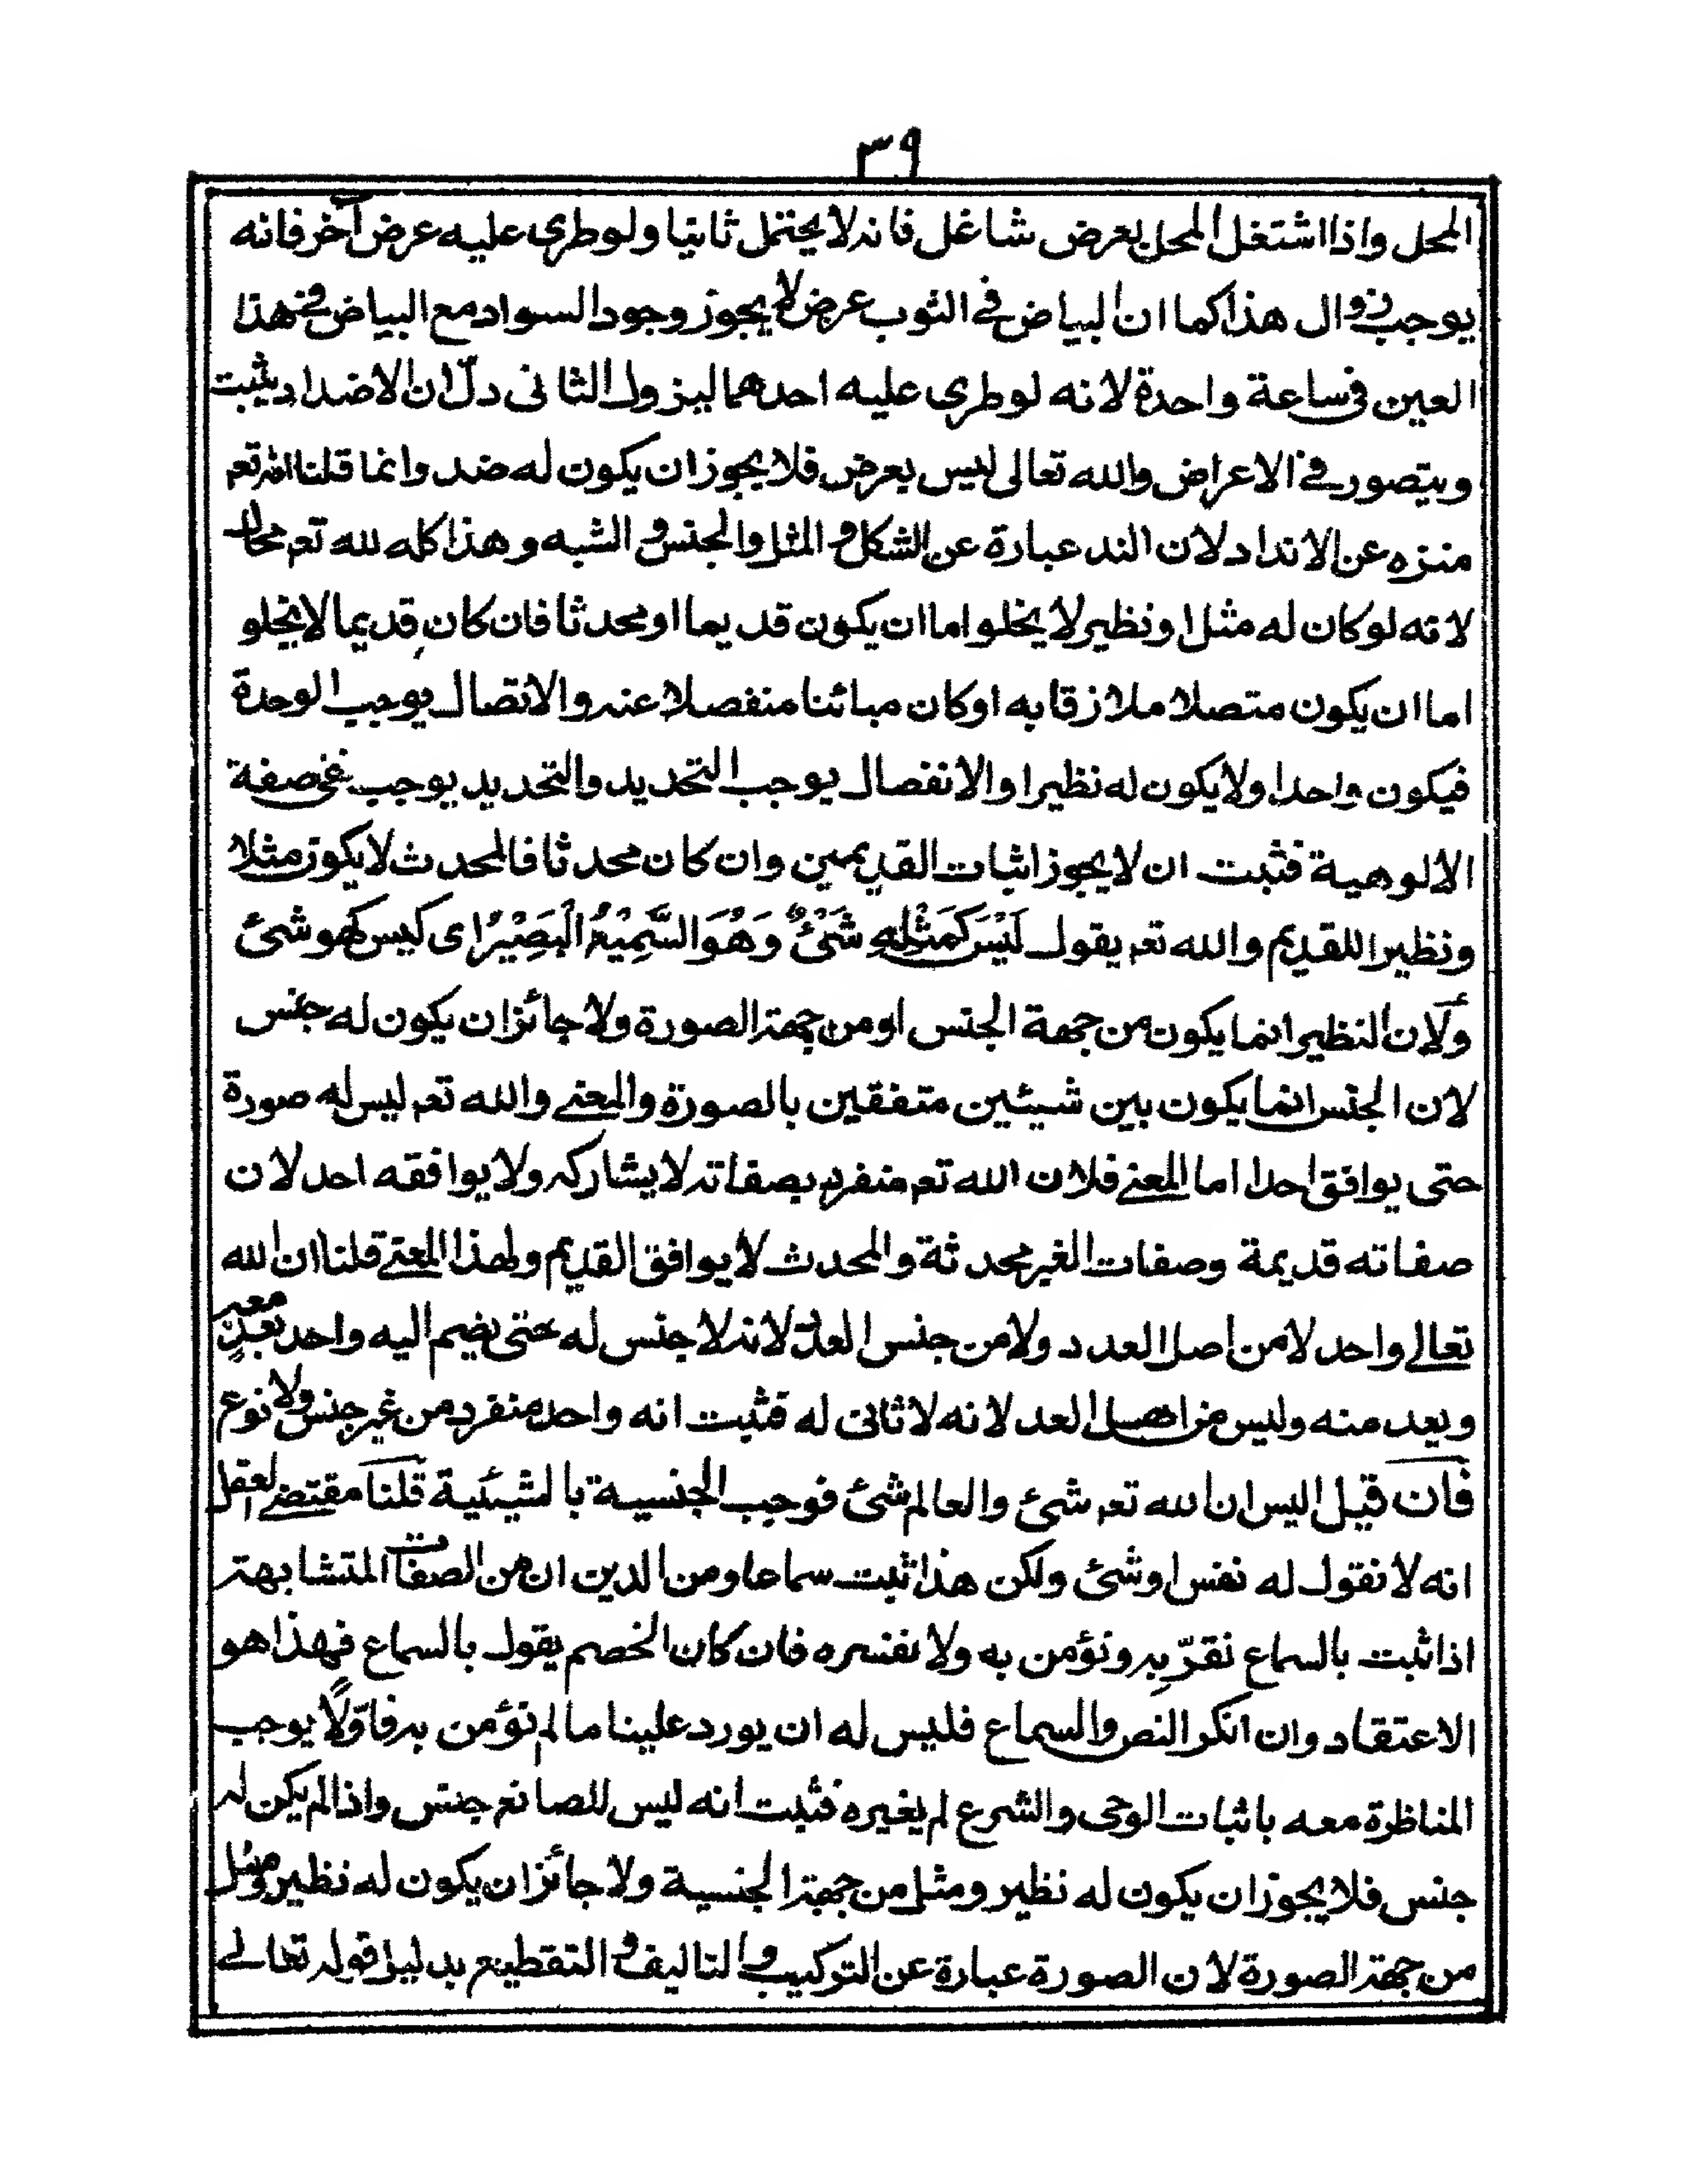 ٣٩
المحل واذا اشتغل المحل بعرض شاغل فانه لا يحتمل ثانيا ولو طرى عليه عرض آخر فانه
يوجب زوال هذا كما ان البياض فى الثوب عرض لا يجوز وجود السواد مع البياض فى هذا
العين فى ساعة واحدة لانه لو طرى عليه احدهما ليزول الثانى دلّ ان الاضداد يثبت
ويتصور فى الاعراض والله تعالى ليس بعرض فلا يجوز ان يكون له ضد وانما قلنا الله تعم
منزه عن الانداد لان الند عبارة عن الشكل و المثل والجنس و الشبه و هذا كله لله تعم محال
لانه لو كان له مثل او نظير لا يخلو اما ان يكون قديما او محدثا فان كان قديما لا يخلو
اما ان يكون متصلا ملازقا به او كان مبائنا منفصلا عنه والاتصال يوجب الوحدة
فيكون واحدا ولا يكون له نظيرا والانفصال يوجب التحديد والتحديد يوجب نفى صفة
الالوهية فثبت ان لا يجوز اثبات القديمين وان كان محدثا فالمحدث لا يكون مثلا
ونظيرا للقديم والله تعم يقول لَيْسَ كَمِثْلِهِ شَىْءٌ وَهُوَ السَّمِيْعُ الْبَصِيْرُ اى كيس كهو شئ
ولان النظير انما يكون من جهة الجنس او من جهة الصورة ولا جائز ان يكون له جنس
لان الجنس انما يكون بين شيئين متفقين بالصورة والمعنى والله تعم ليس له صورة
حتى يوافق احدا اما المعنى فلان الله تعم منفرد بصفاته لا يشاركه ولا يوافقه احد لان
صفاته قديمة وصفات الغير محدثة والمحدث لا يوافق القديم ولهذا المعنى قلنا ان الله
تعالى واحد لا من اصل العدد ولا من جنس العدد لانه لا جنس له حتى يضم اليه واحد بعد معه
ويعد منه وليس من اصل العدد لانه لا ثانى له فثبت انه واحد منفرد من غير جنس ولا نوع
فان قيل اليس ان الله تعم شئ والعالم شئ فوجب الجنسية بالشيئية قلنا مقتضى العقل
انه لا نقول له نفس او شئ ولكن هذا ثبت سماعا ومن الدين ان من الصفات المتشابهة
اذا ثبت بالسماع نقرّ به ونؤمن به ولا نفسره فان كان الخصم يقول بالسماع فهذا هو
الاعتقاد وان انكر النص والسماع فليس له ان يورد علينا ما لم نؤمن به فاوّلًا يوجب
المناظرة معه باثبات الوحى والشرع لم يغيره فثبت انه ليس للصانع جنس واذا لم يكن له
جنس فلا يجوز ان يكون له نظير ومثل من جهة الجنسية ولا جائز ان يكون له نظير ومثل
من جهة الصورة لان الصورة عبارة عن التركيب والتاليف و التقطيع بدليل قوله تعالى